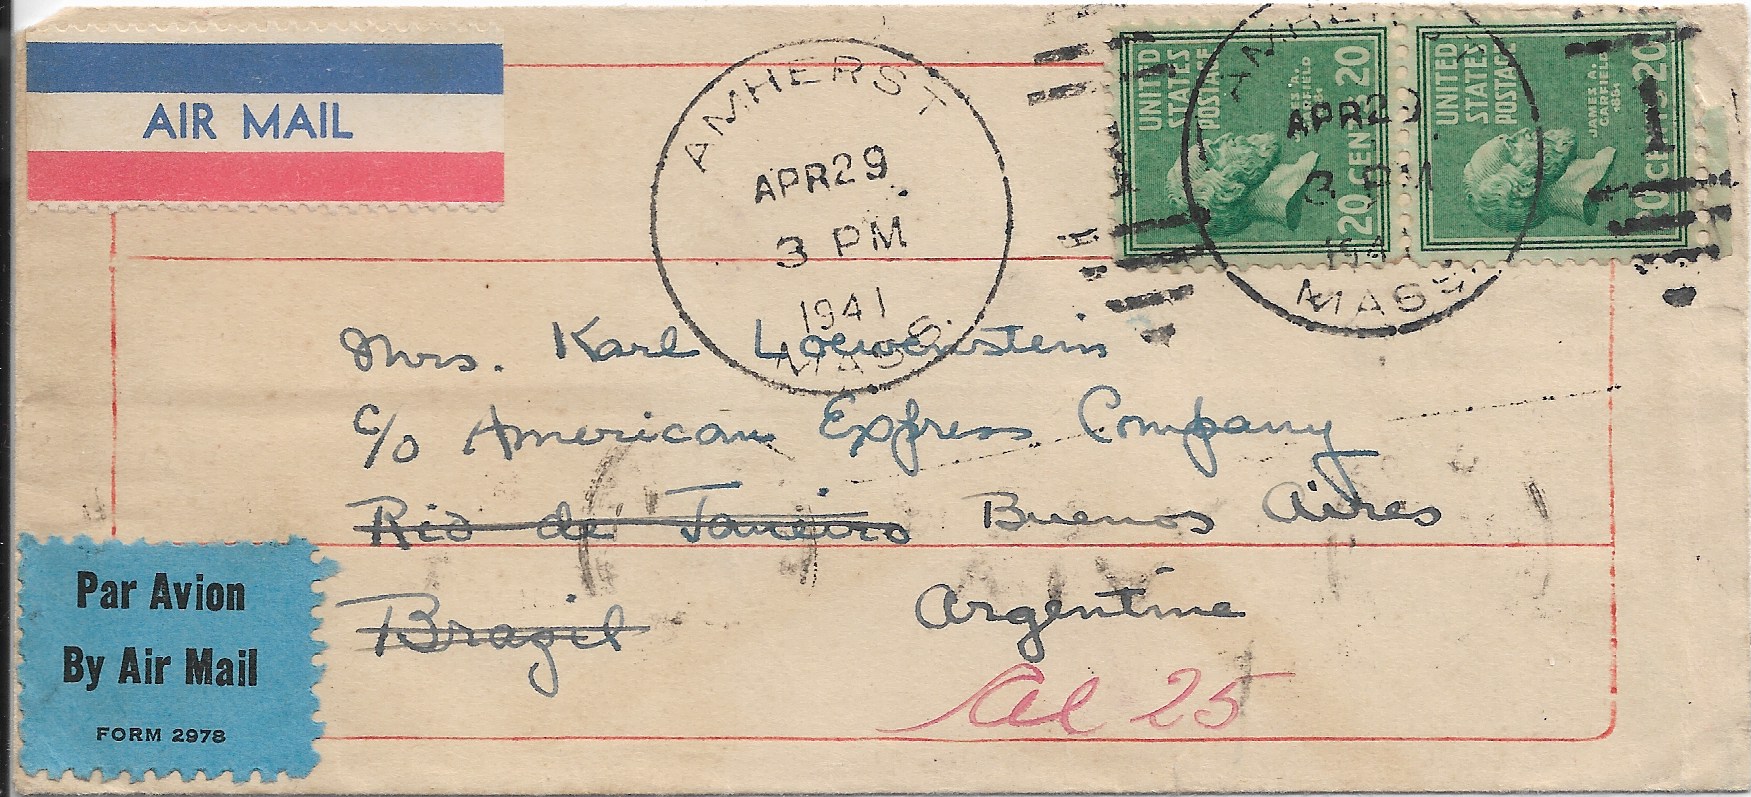 AIR MAIL
AMHERST
APR 29
3 PM
1941
MASS.
UNITED STATES POSTAGE
JAMES A. GARFIELD
20 CENTS 20
UNITED STATES POSTAGE
JAMES A. GARFIELD
20 CENTS 20
AMHERST
APR 29
3 PM
1941
MASS.
Mrs. Karl Loewenstein
c/o American Express Company
Rio de Janeiro Buenos Aires
Brazil Argentine
Par Avion
By Air Mail
FORM 2978